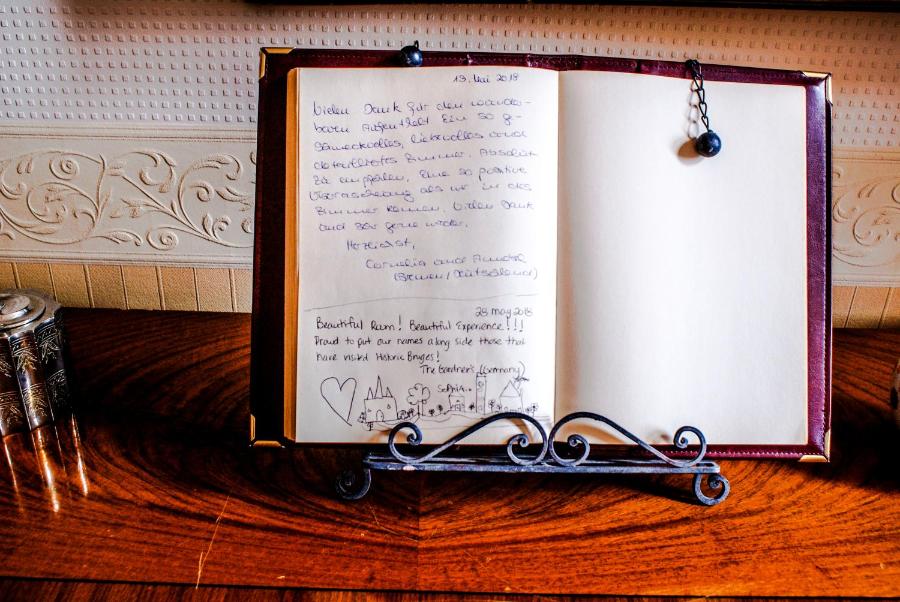 13. Mai 2018
Vielen Dank für den wunder-
baren Aufenthalt. Ein so ge-
schmackvolles, liebevolles und
detailliertes Zimmer. Absolut
zu empfehlen. Eine so positive
Überraschung als wir in das
Zimmer kamen. Vielen Dank
und sehr gerne wieder.
Herzlichst,
Cornelia und
(Bremen/Deutschland)
28 may 2018
Beautiful Room! Beautiful Experience!!!
Proud to put our names along side those that
have visited Historic Bruges!
The Gardner's (Germany)
Sophia..